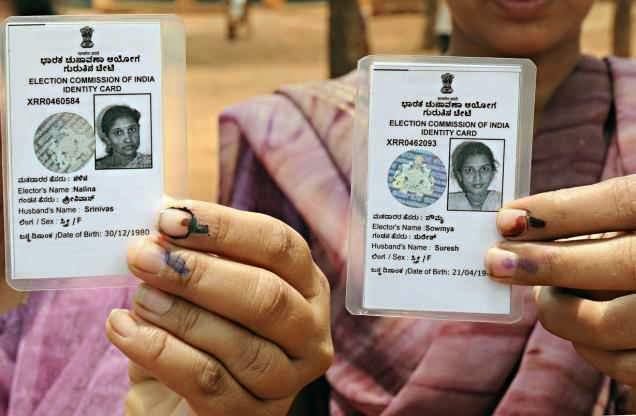 ಭಾರತ ಚುನಾವಣಾ ಆಯೋಗ
ಗುರುತಿನ ಚೀಟಿ
ELECTION COMMISSION OF INDIA
IDENTITY CARD
XRR0460584
ಮತದಾರರ ಹೆಸರು : ನಳಿನ
Elector's Name : Nalina
ಗಂಡನ ಹೆಸರು : ಶ್ರೀನಿವಾಸ್
Husband's Name : Srinivas
ಲಿಂಗ / Sex : ಸ್ತ್ರೀ / F
ಜನ್ಮ ದಿನಾಂಕ /Date of Birth: 30/12/1980
ಭಾರತ ಚುನಾವಣಾ ಆಯೋಗ
ಗುರುತಿನ ಚೀಟಿ
ELECTION COMMISSION OF INDIA
IDENTITY CARD
XRR0462093
ಮತದಾರರ ಹೆಸರು : ಸೌಮ್ಯ
Elector's Name : Sowmya
ಗಂಡನ ಹೆಸರು : ಸುರೇಶ್
Husband's Name : Suresh
ಲಿಂಗ / Sex : ಸ್ತ್ರೀ / F
ಜನ್ಮ ದಿನಾಂಕ /Date of Birth: 21/04/198